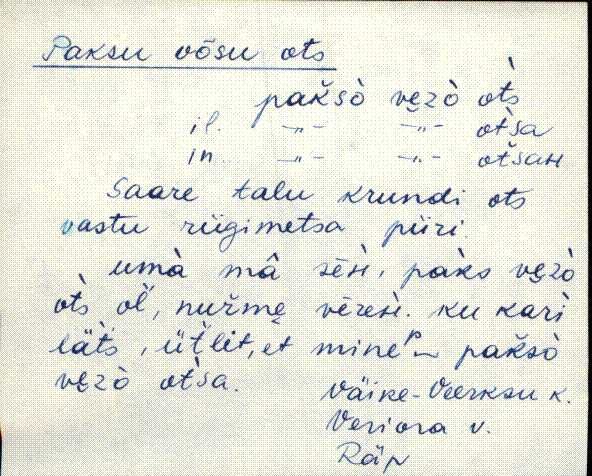 Paksu võsu ots
pakšò vezò òts
il. -„- -„- otsa
in. -„- -„- otsan
Saare talu krundi ots
vastu riigimetsa piiri.
umà mâ sēn, pàks vezò
òts ol̄, nuřmẹ vēren. ku kari
läts, ütlit, et mine pakšò
vezò otsa.
Väike-Veerksu k.
Veriora v.
Räp